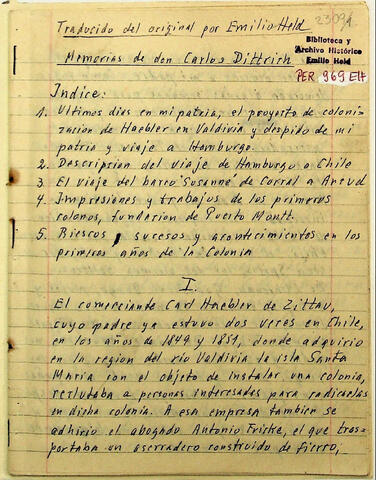 23094
Traducido del original por Emilio Held
Biblioteca y
Archivo Histórico
Emilio Held
PER 969 EIH
Memorias de don Carlos Dittrich
Indice:
1. Ultimos dias en mi patria, el proyecto de coloni-
zacion de Haebler en Valdivia y despido de mi
patria y viaje a Hamburgo.
2. Descripcion del viaje de Hamburgo a Chile
3. El viaje del barco "Susanne" de Corral a Ancud
4. Impresiones y trabajos de los primeros
colonos, fundacion de Puerto Montt.
5. Riesgos, sucesos y acontecimientos en los
primeros años de la Colonia
I.
El comerciante Carl Haebler de Zittau,
cuyo padre ya estuvo dos veces en Chile,
en los años de 1849 y 1851, donde adquirio
en la region del río Valdivia la isla Santa
María con el objeto de instalar una colonia,
reclutaba a personas interesadas para radicarlas
en dicha colonia. A esa empresa tambien se
adhirio el abogado Antonio Fricke, el que tras-
portaba un aserradero construido de fierro,